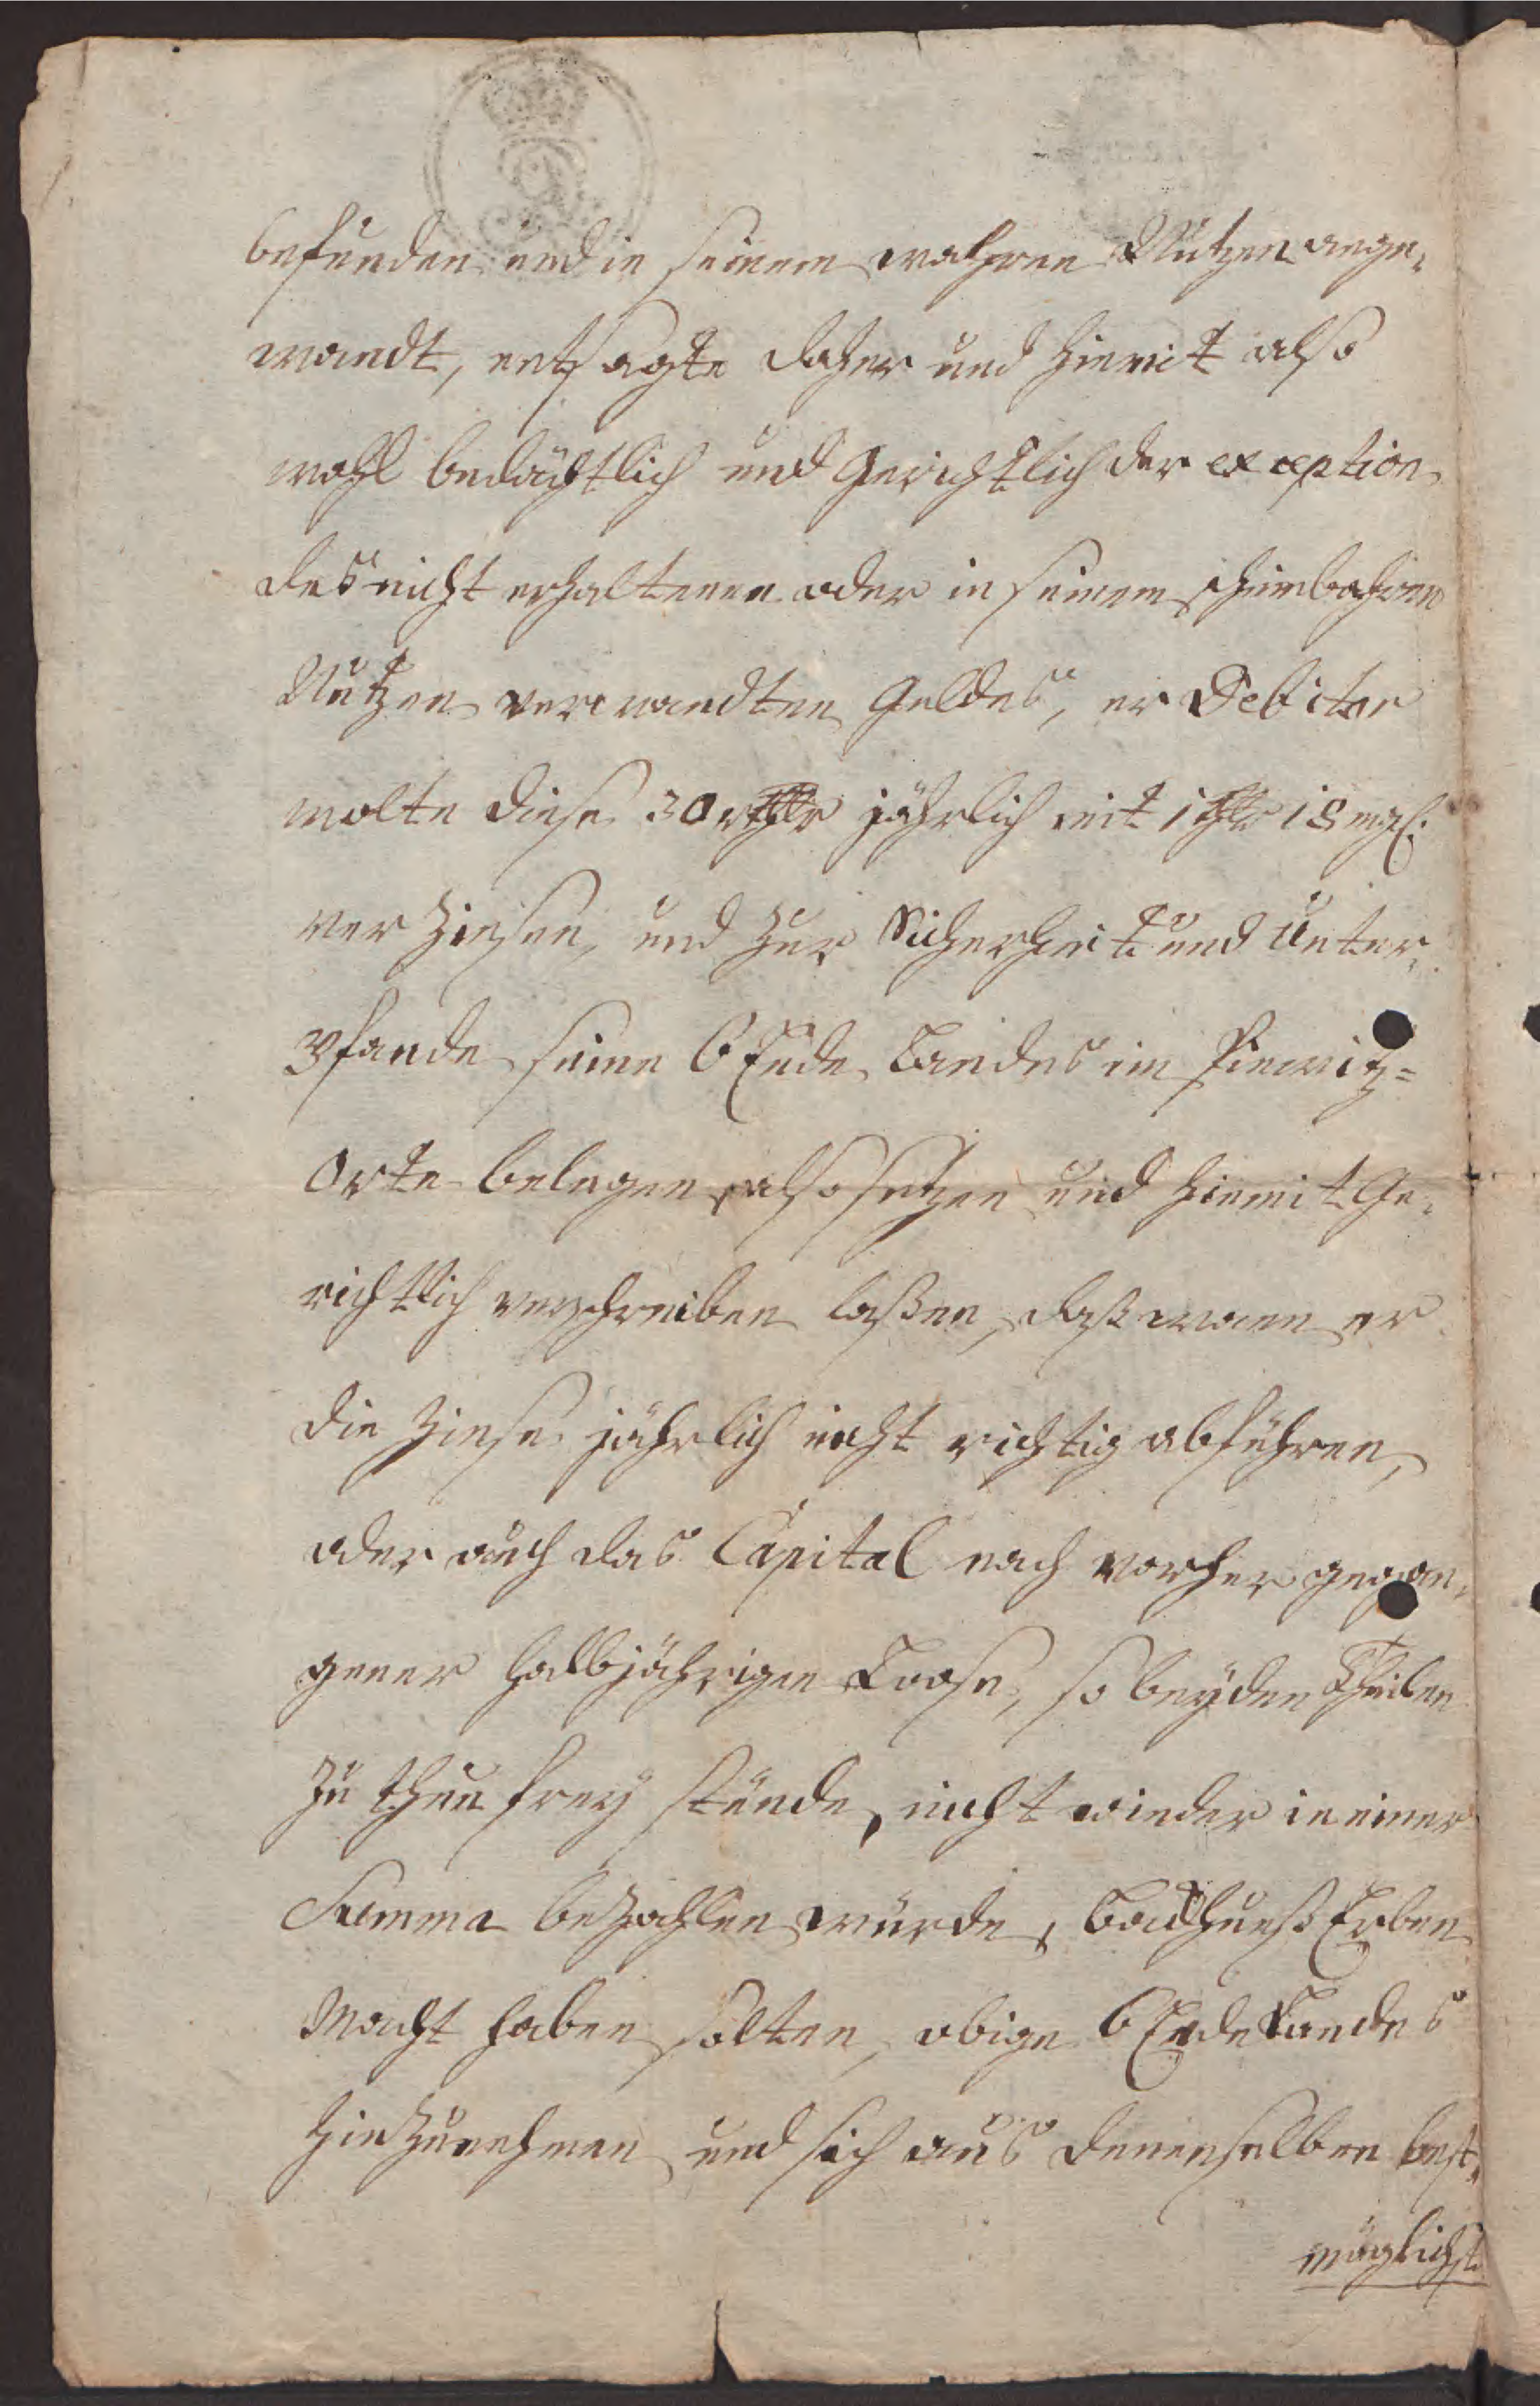 befunden und in seinem wahren Nutzen ange-
wandt, entsagte daher und hiemit also
wohl bedächtlich und Gerichtlich der exception
des nicht erhaltenen oder in seinem scheinbahren
Nutzen verwandten Geldes, er Debitor
wolte diese 30 rthlr jährlich mit 1 thlr 18 mgl.
verzinsen, und zur Sicherheit und Unter-
Pfande seine 6 Ende Landes im
Orte belegen, also setzen und hiemit Ge-
richtlich verschreiben laßen, daß wann er
die Zinse jährlich nicht richtig abführen,
oder auch das Capital nach vorher gegan-
gener halbjährigen Loose, so beyden Theilen
zu thun frey stünde, nicht wieder in einer
Summa bezahlen würde, Erben
Macht haben solten, obige 6 Ende Landes
hinzunehmen und sich aus denenselben best-
möglichst